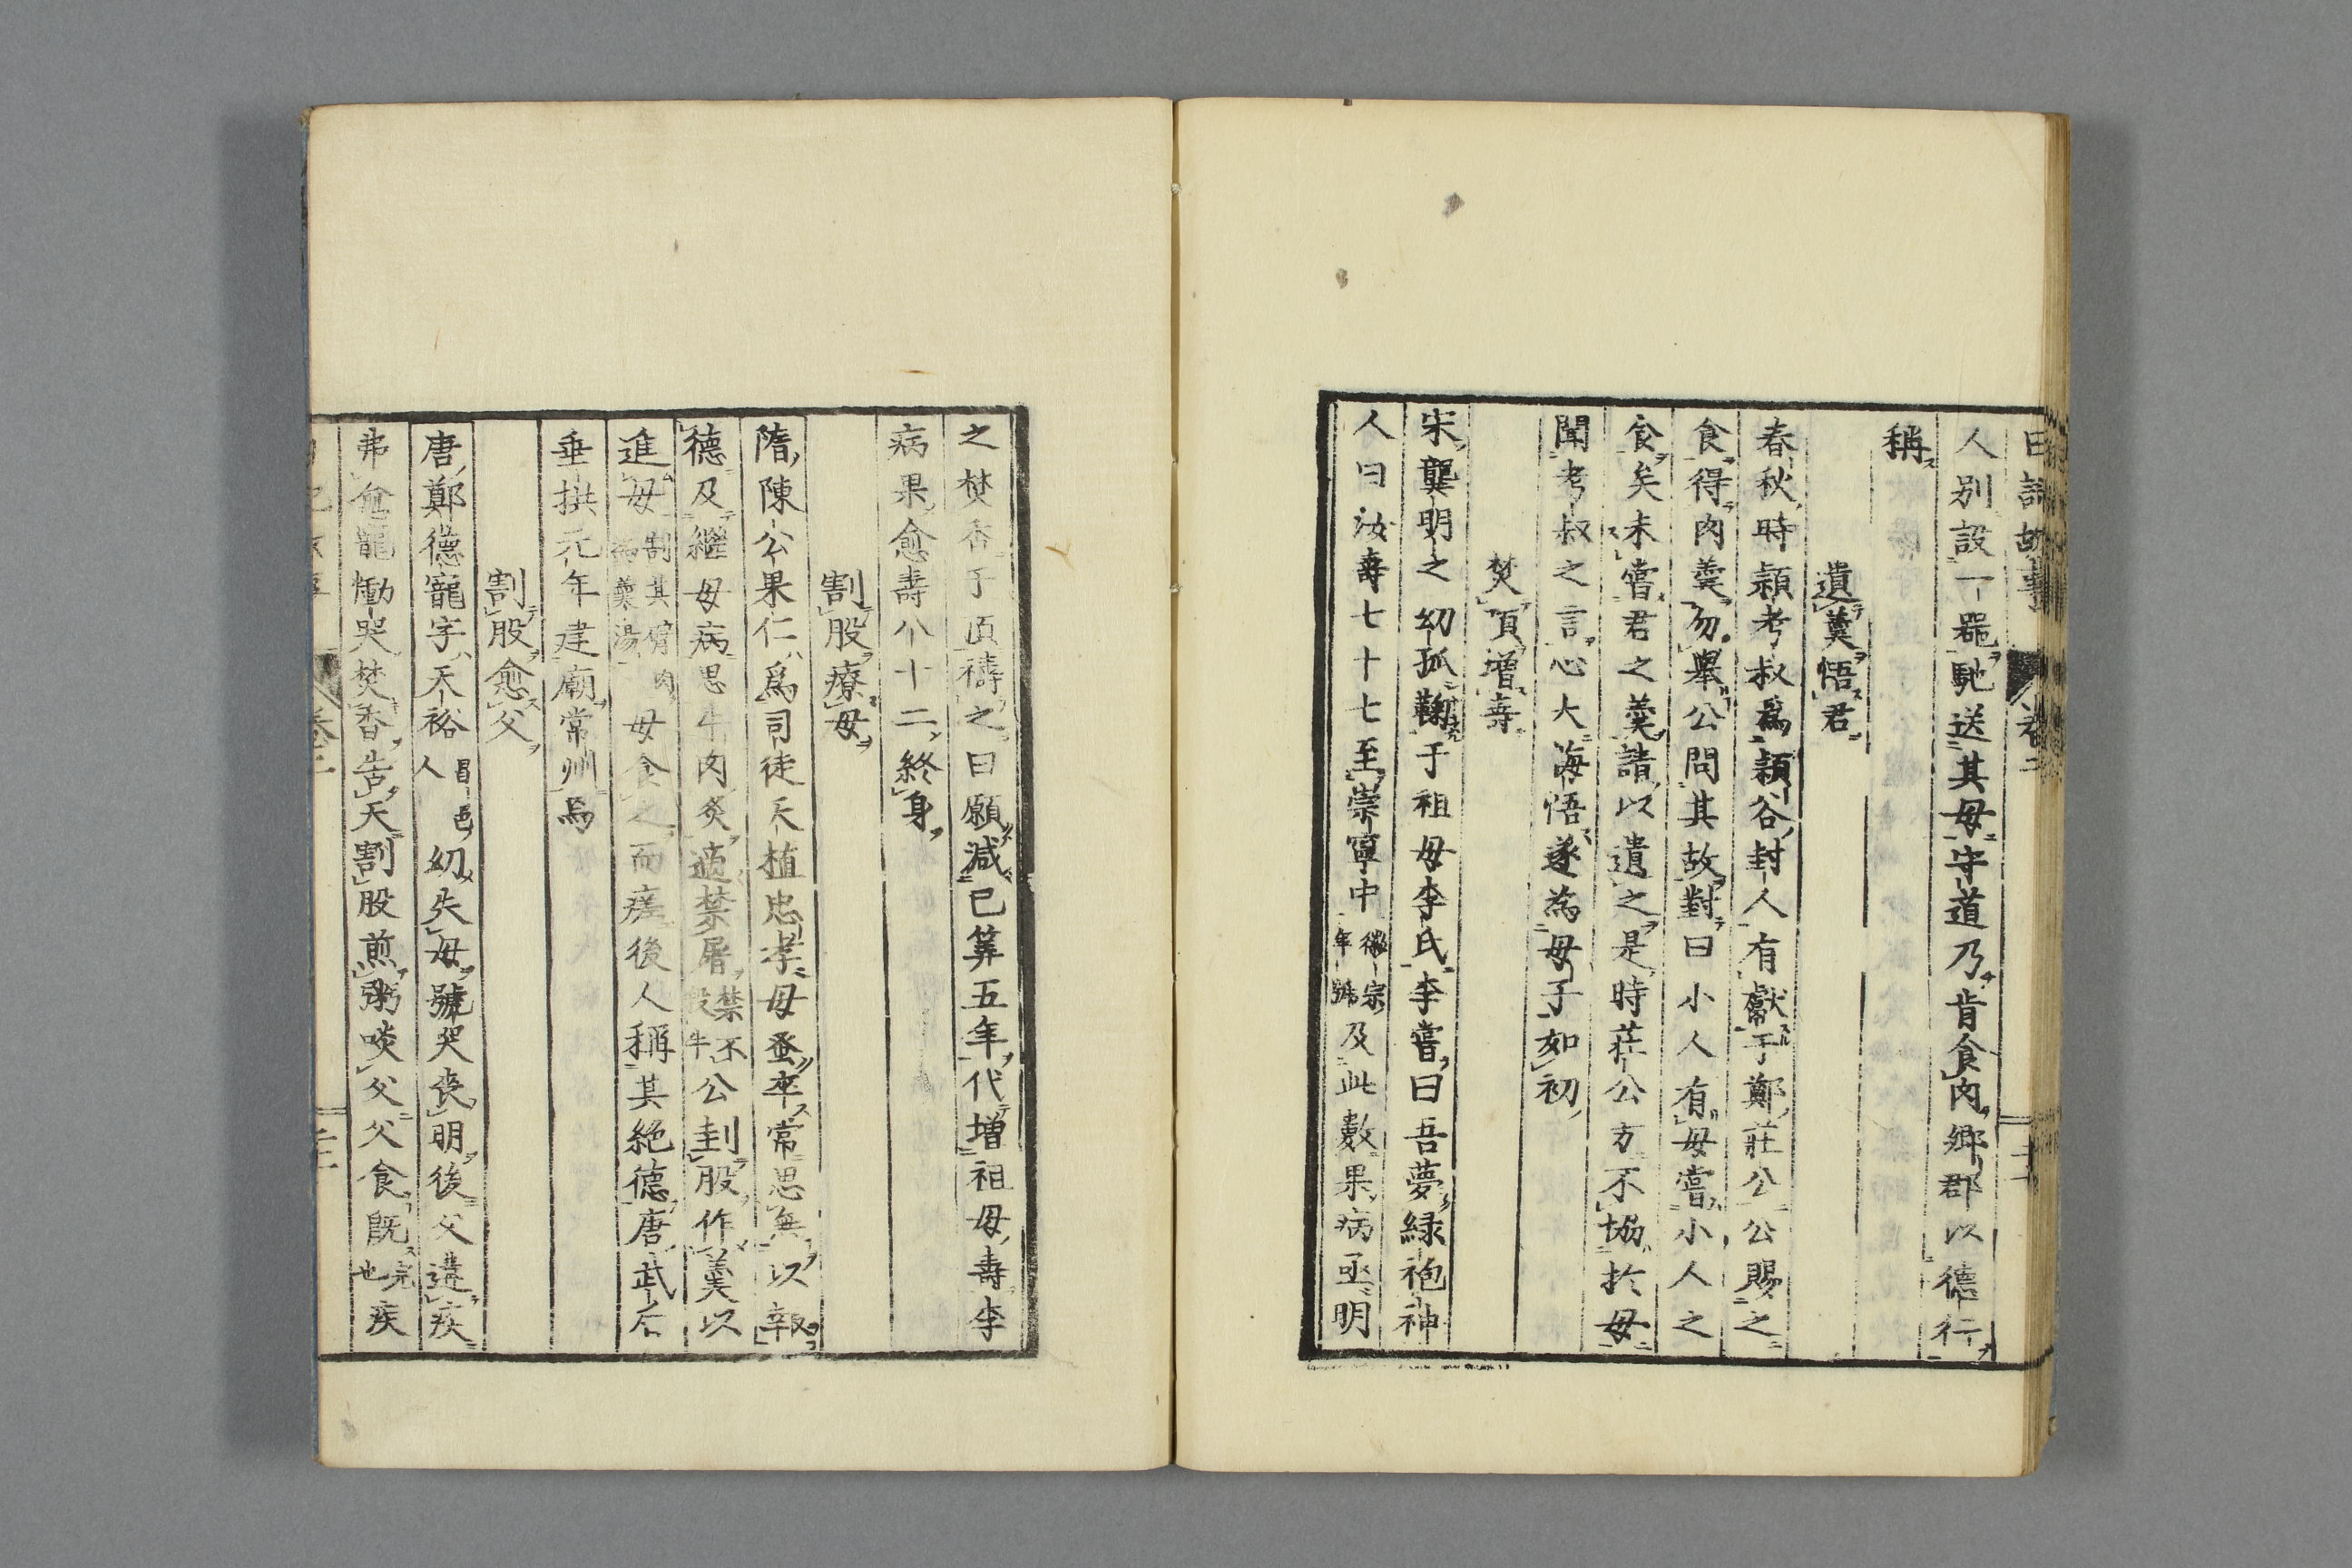 日記故事 卷二
人別設一器馳送其母守道乃肯食肉鄉郡以德行
稱
遺羹悟君
春秋時穎考叔爲穎谷封人有獻于鄭莊公公賜之
食得肉羹勿舉公問其故對曰小人有母嘗小人之
食矣未嘗君之羹請以遺之是時莊公方不協於母
聞考叔之言心大海悟遂為母子如初
焚頂增壽
宋龔明之幼孤鞠于祖母李氏李嘗曰吾夢緑袍神
人曰汝壽七十七至崇寧中徽宗年號及此數果病亟明
之焚香于頂禱之曰願減已筭五年代增祖母壽李
病果愈壽八十二終身
割股療母
隋陳公果仁爲司徒天植忠孝母蚤卒常思無以報
德及繼母病思牛肉炙適禁屠禁不殺牛公刲股作羹以
進母割其䏶肉為羹湯母食之而瘥後人稱其絶德唐武后
垂拱元年建廟常州焉
割股愈父
唐鄭德寵字天裕昌邑人幼失母號哭喪明後父遘疾
弗愈寵慟哭焚香告天割股煎粥啖父父食既完也疾